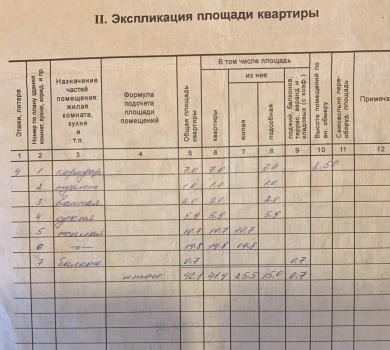 II. Экспликация площади квартиры
Этажи, литера
Номер по плану здания
Назначение частей помещения: жилая комната, кухня и т.п.
Формула подсчета площади помещений
Общая площадь квартиры
В том числе площадь
из нее
квартиры
жилая
подсобная
лоджий, балконов, террас, веранд и кладовых (с коэф.)
Высота помещений по вн. обмеру
Самовольно пере- оборуд. площадь
Примеча
1 2 3 4 5 6 7 8 9 10 11 12
4 1 коридор 7.0 7.0 7.0 2.50
2 туалет 1.0 1.0 1.0
3 ванная 2.0
4 кухня 5.9 5.9 5.9
5 жилая 10.7 10.7 10.7
6 –"– 14.8 14.8 14.8
7 балкон 0.7 0.7
итого: 42.1 41.4 25.5 15.0 0.7